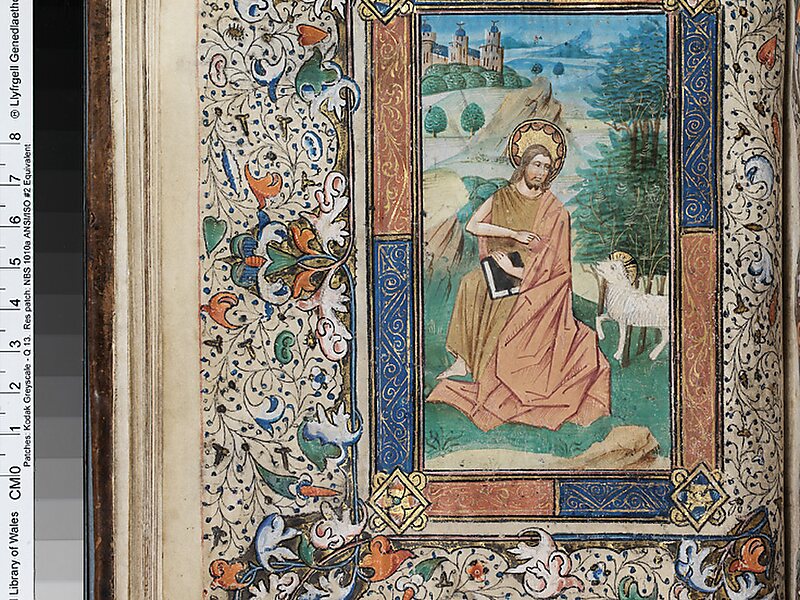 Library of Wales
CM 0 1 2 3 4 5 6 7 8
® Llyfrgell Genedlaethol
Patches: Kodak Greyscale - Q 13. Res patch: NBS 1010a ANSI/ISO #2 Equivalent